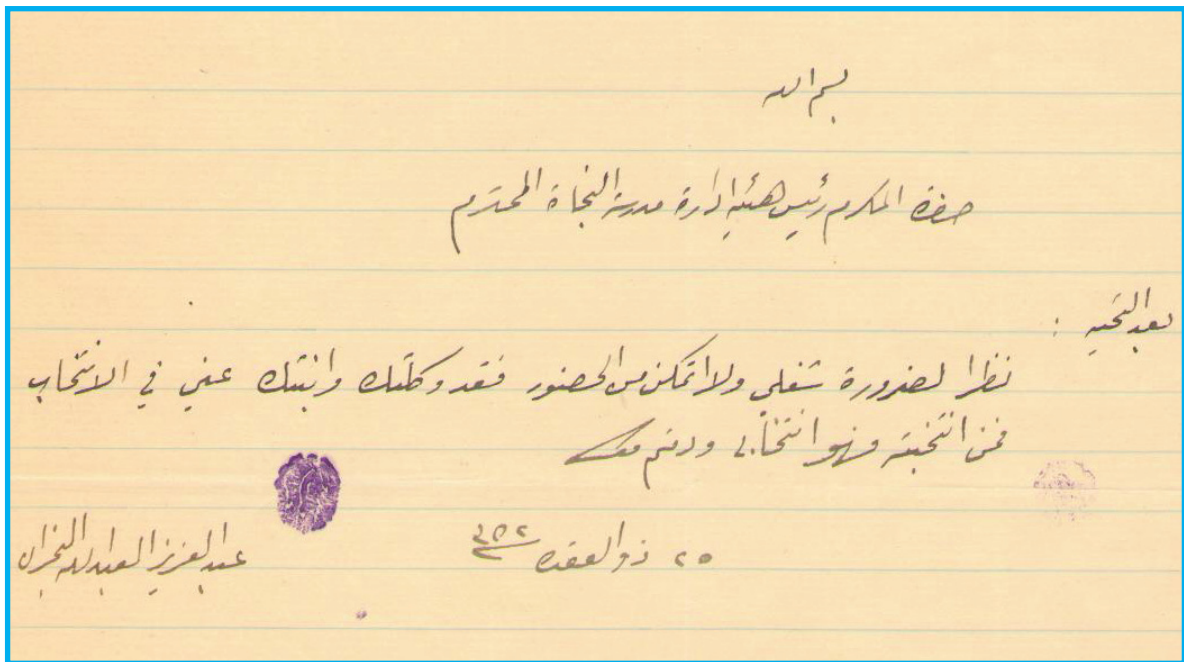 بسم الله
حضرة المكرم رئيس هيئة إدارة مدرسة النجاة المحترم
بعد التحيه :
نظرا لضرورة شغلي ولا اتمكن من الحضور فقد وكلتك وانبتك عني في الانتخاب
فمن انتخبته فهو انتخابي ودمتم
٢٥ ذو القعده
عبد العزيز العبد الله